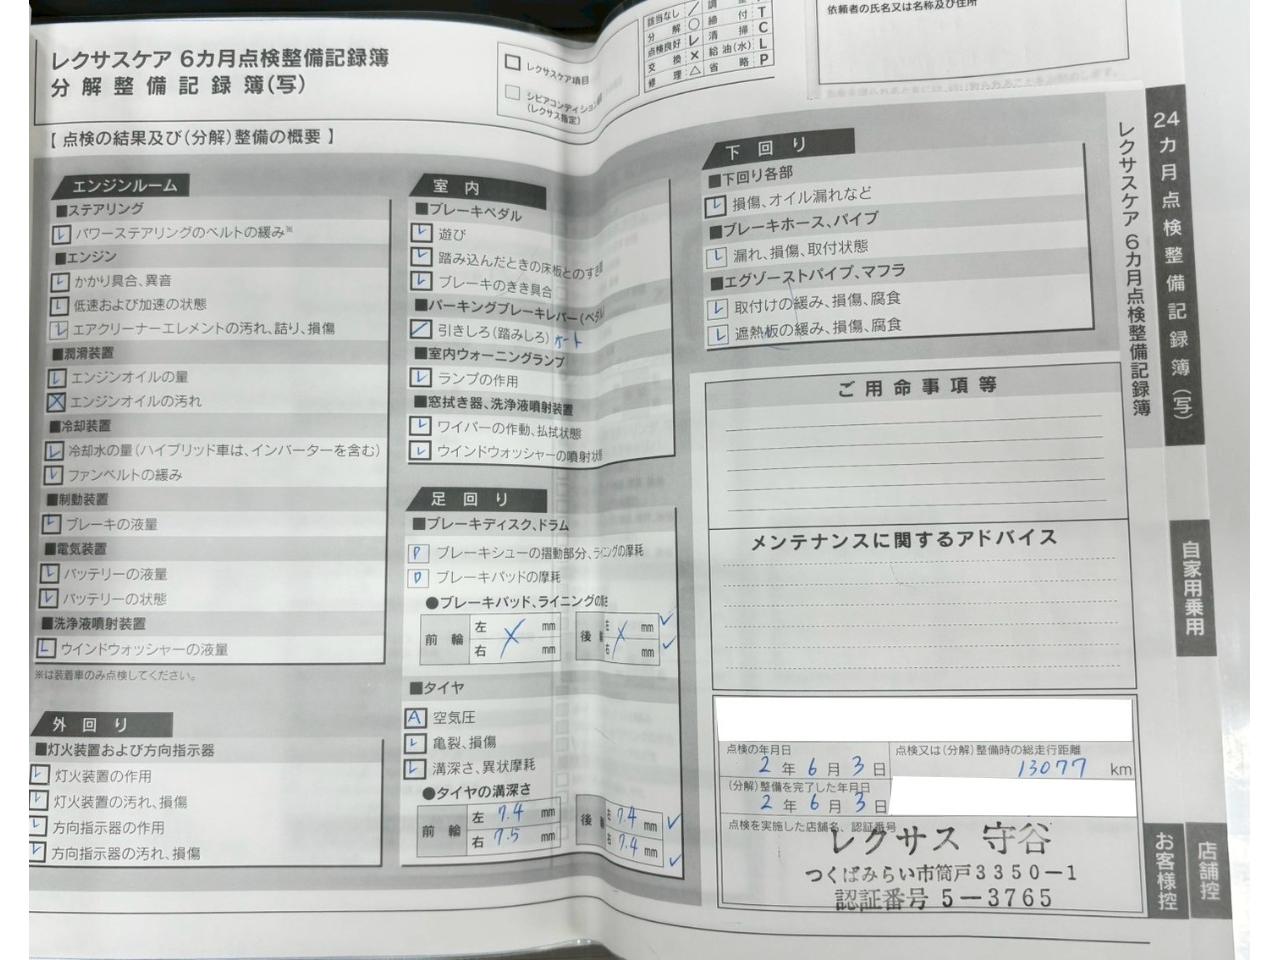 レクサスケア 6カ月点検整備記録簿
分解整備記録簿(写)
レクサスケア項目
シビアコンディション
(レクサス指定)
該当なし ／
分解 ○ 締付 T
点検良好 レ 清掃 C
交換 × 給油(水) L
修理 △ 省略 P
依頼者の氏名又は名称及び住所
【 点検の結果及び(分解)整備の概要 】
エンジンルーム
■ステアリング
レ パワーステアリングのベルトの緩み※
■エンジン
レ かかり具合、異音
レ 低速および加速の状態
レ エアクリーナーエレメントの汚れ、詰り、損傷
■潤滑装置
レ エンジンオイルの量
× エンジンオイルの汚れ
■冷却装置
レ 冷却水の量(ハイブリッド車は、インバーターを含む)
レ ファンベルトの緩み
■制動装置
レ ブレーキの液量
■電気装置
レ バッテリーの液量
レ バッテリーの状態
■洗浄液噴射装置
レ ウインドウォッシャーの液量
※は装着車のみ点検してください。
外回り
■灯火装置および方向指示器
レ 灯火装置の作用
レ 灯火装置の汚れ、損傷
レ 方向指示器の作用
レ 方向指示器の汚れ、損傷
室内
■ブレーキペダル
レ 遊び
レ 踏み込んだときの床板とのすき間
レ ブレーキのきき具合
■パーキングブレーキレバー(ペダル
／ 引きしろ(踏みしろ) オート
■室内ウォーニングランプ
レ ランプの作用
■窓拭き器、洗浄液噴射装置
レ ワイパーの作動、払拭状態
レ ウインドウォッシャーの噴射状
足回り
■ブレーキディスク、ドラム
P ブレーキシューの摺動部分、ライニングの摩耗
P ブレーキパッドの摩耗
●ブレーキパッド、ライニングの
前輪 左 × mm 後 左 × mm ✓
右 mm 右 mm ✓
■タイヤ
A 空気圧
レ 亀裂、損傷
レ 溝深さ、異状摩耗
●タイヤの溝深さ
前輪 左 7.4 mm 後 左 7.4 mm ✓
右 7.5 mm 右 7.4 mm ✓
下回り
■下回り各部
レ 損傷、オイル漏れなど
■ブレーキホース、パイプ
レ 漏れ、損傷、取付状態
■エグゾーストパイプ、マフラ
レ 取付けの緩み、損傷、腐食
レ 遮熱板の緩み、損傷、腐食
ご用命事項等
メンテナンスに関するアドバイス
点検の年月日
2年6月3日
点検又は(分解)整備時の総走行距離
13077 km
(分解)整備を完了した年月日
2年6月3日
点検を実施した店舗名、認証番号
レクサス 守谷
つくばみらい市筒戸3350-1
認証番号 5-3765
レクサスケア 6カ月点検整備記録簿
24カ月点検整備記録簿(写)
自家用乗用
お客様控
店舗控